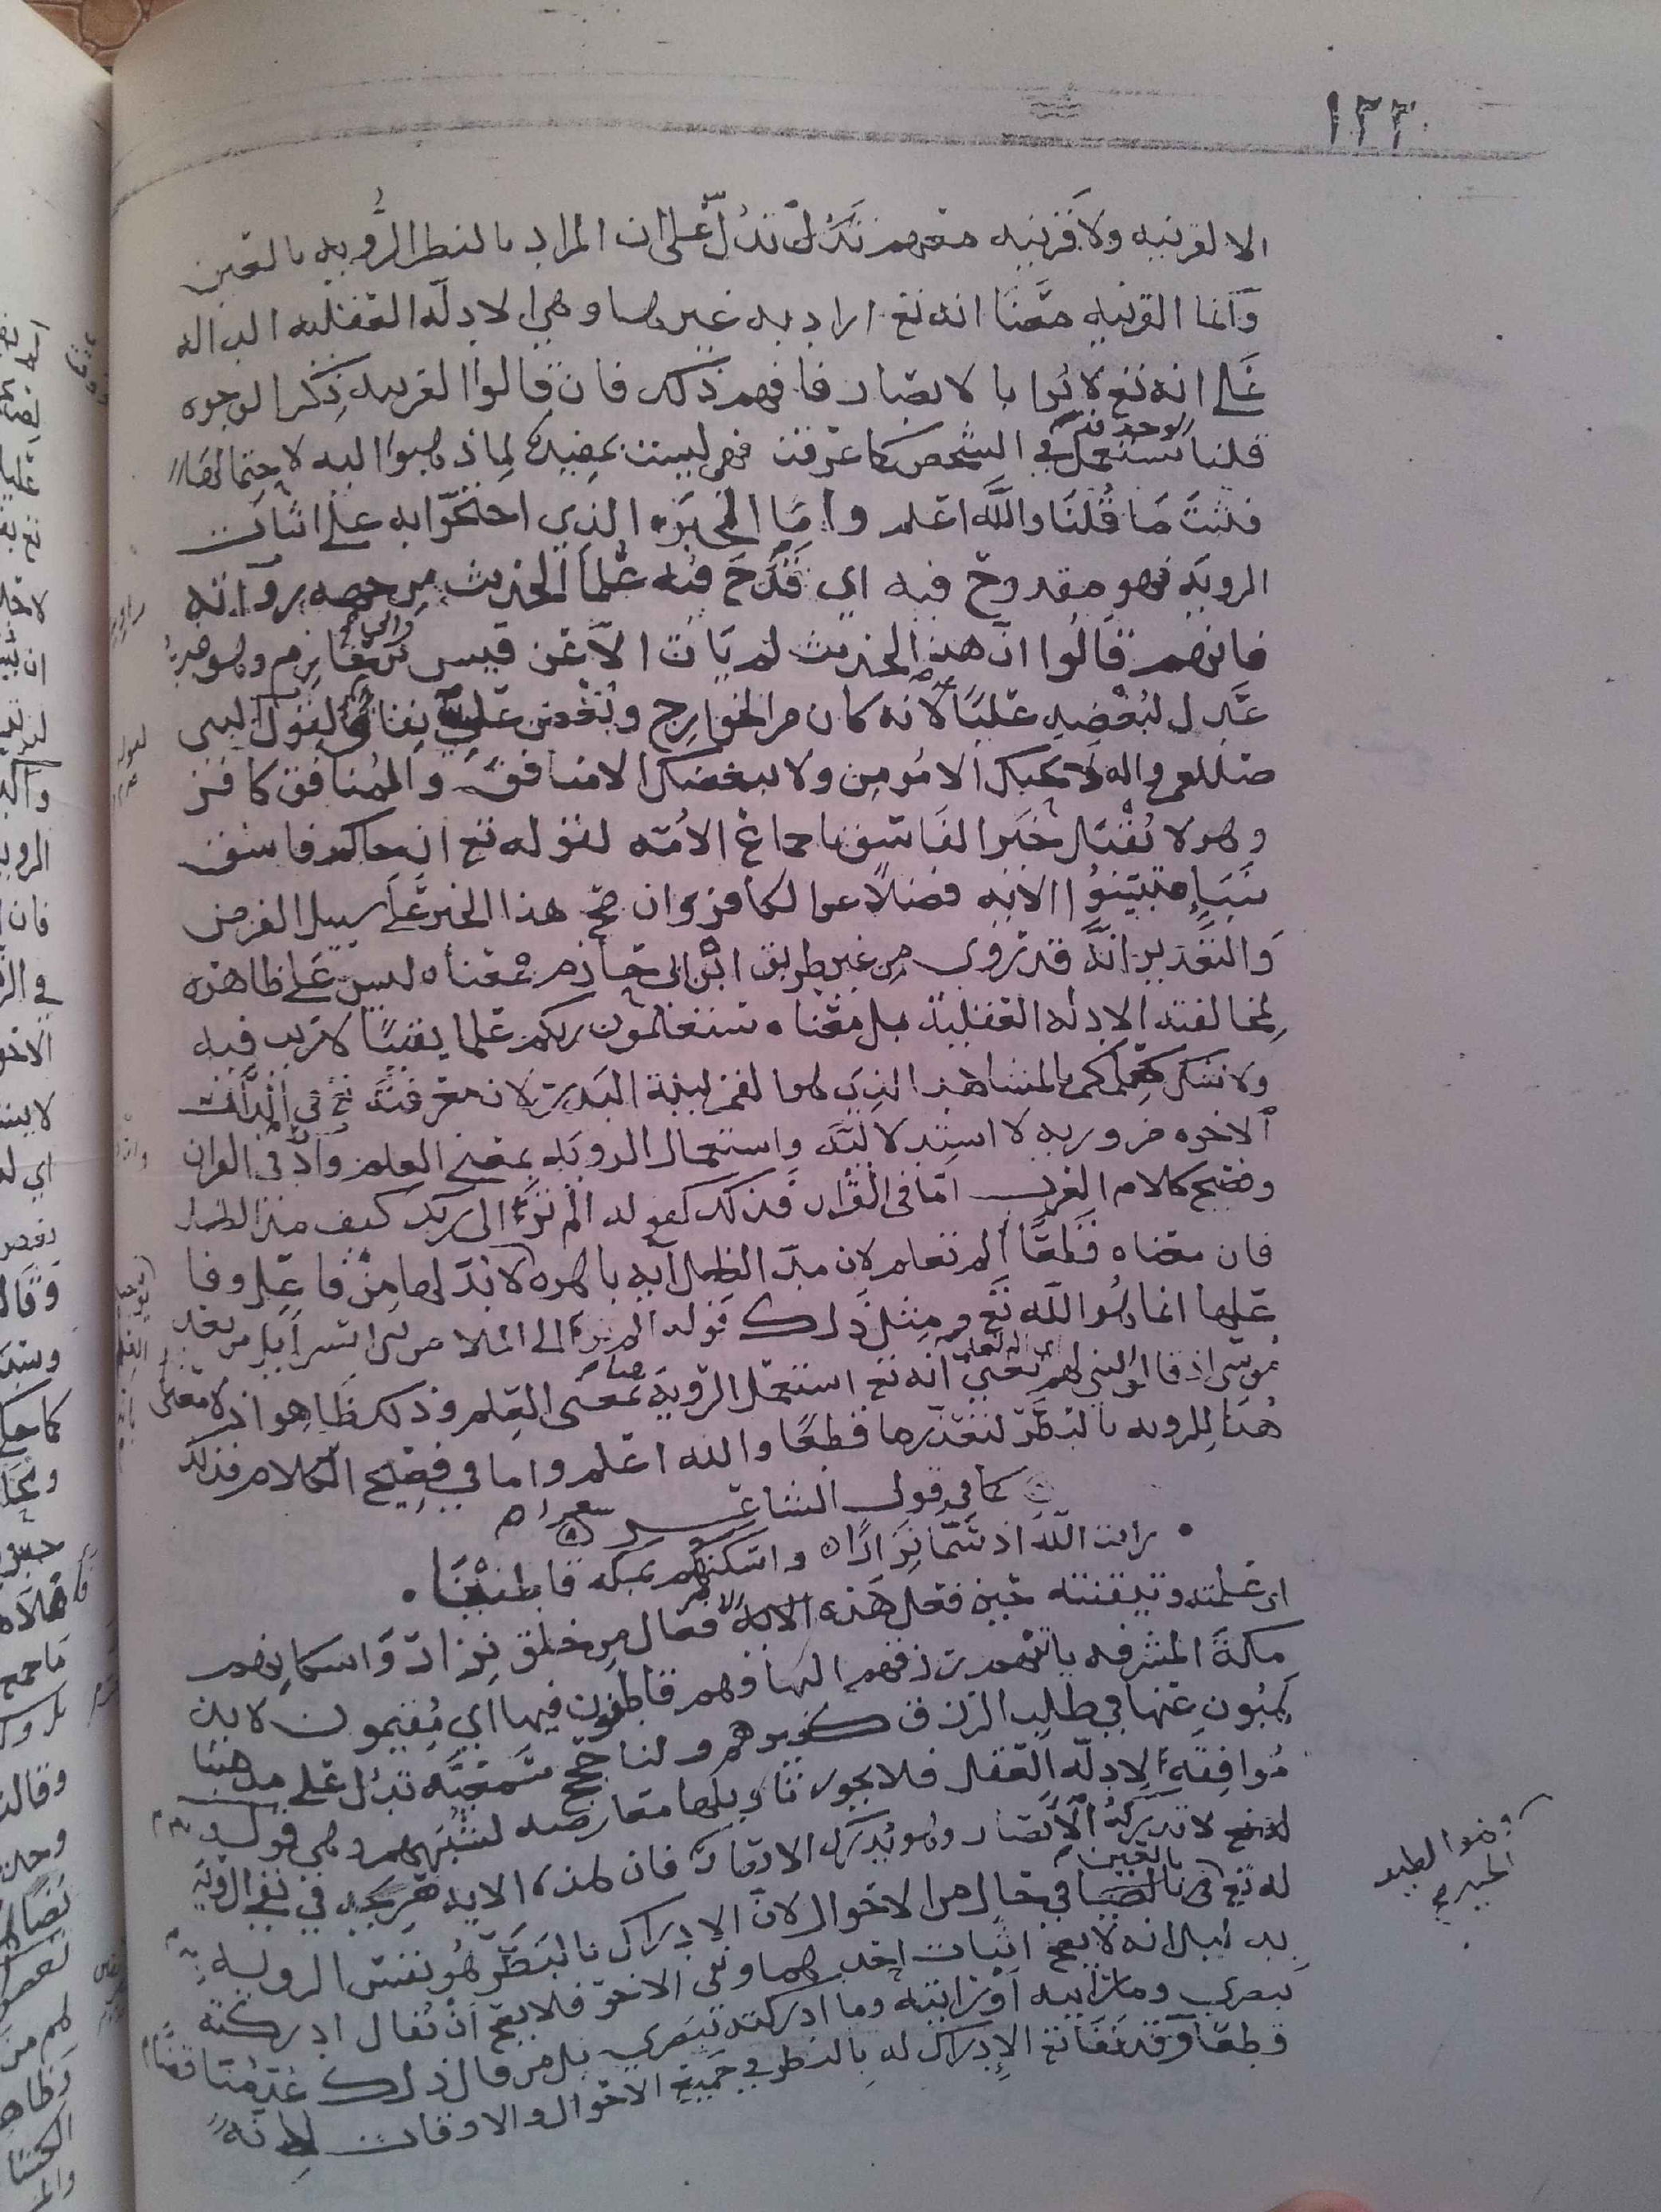 ١٣٣
الا لقرينه ولا قرينه معهم تدل على ان المراد بالنظر الرؤيه بالعين
وانما القرينه معنا انه تع اراد به غيرها وهي الادله العقليه الداله
على انه تع لا يرا بالابصار فافهم ذلك فان قالوا القرينه ذكر الوجوه
قلنا الوجه قد تستعمل في الشخص كما عرفت فهي ليست بمفيدة لما ذهبوا اليه لاحتمالها
فثبت ما قلنا والله اعلم واما الخبر الذي احتجوا به على اثبات
الرويه فهو مقدوح فيه اي قدح فيه علما الحديث من جهه رواته
فانهم قالوا ان هذا الحديث لم يات الا عن قيس بن ابي حازم وهو غير
عدل لبغضه عليًا لانه كان من الخوارج وبغض علي نفاق لقول النبي
صللعم واله لا يحبك الا مؤمن ولا يبغضك الا منافق والمنافق كافر
وهو لا يقبل خبر الفاسق باجماع الأمه لقوله تع ان جاكم فاسق
بنبإ فتبينوا الايه فضلاً عن الكافر وان صح هذا الخبر على سبيل الفرض
والتقدير انه قد روي من غير طريق ابن ابي حازم فمعناه ليس على ظاهره
لمخالفته الادله العقلية بل معناه ستعلمون ربكم علما يقينًا لا ريب فيه
ولا شك كعلمكم بالمشاهد الذي هو القمر ليلة البدر لان معرفته تع في الدار
الاخره ضروريه لا استدلاليه واستعمال الرويه بمعنى العلم وارد في القران
وفصيح كلام العرب اما في القران فذلك كقوله الم تر الى ربك كيف مد الظل
فان معناه قطعًا ألم تعلم لان مد الظل ايه باهره لا بد لها من فاعل وفا
علها انما هو الله تع ومثل ذلك قوله الم تر الى الملا من بني اسرايل من بعد
موسى اذ قالوا لنبي لهم يعني انه تع استعمل الرؤية هنا بمعنى العلم وذلك ظاهر اذ لا معنى
هنا للرويه بالبصر لتعذرها قطعًا والله اعلم واما في فصيح الكلام فذلك
كما في قول الشاعر شعرا
رايت الله اذ سما نزارًا واسكنهم بمكه قاطنينا
اي علمته وتيقنته حين فعل هذه الافعال من خلق نزار واسكانهم
مكة المشرفه ياتيهم رزقهم اليها وهم قاطنون فيها اي مقيمون لا يذ
هبون عنها في طلب الرزق كغيرهم ولنا حجج سمعيه تدل على مذهبنا
موافقه لادله العقل فلا يجوز تاويلها معارضه لشبههم وهي قوله
تع لا تدركه الأبصار وهو يدرك الابصار فان هذه الايه صريحه في نفي الرؤيه
له تع بالعين في حال من الاحوال لان الادراك بالبصر هو نفس الرويه
به بدليل انه لا يصح اثبات احدهما ونفي الاخر فلا يصح ان يقال ادركته
ببصري وما رايته او رايته وما ادركته ببصري بل من قال ذلك عد مناقضًا
قطعًا وقد نفا تع الإدراك له بالنظر في جميع الاحوال والاوقات